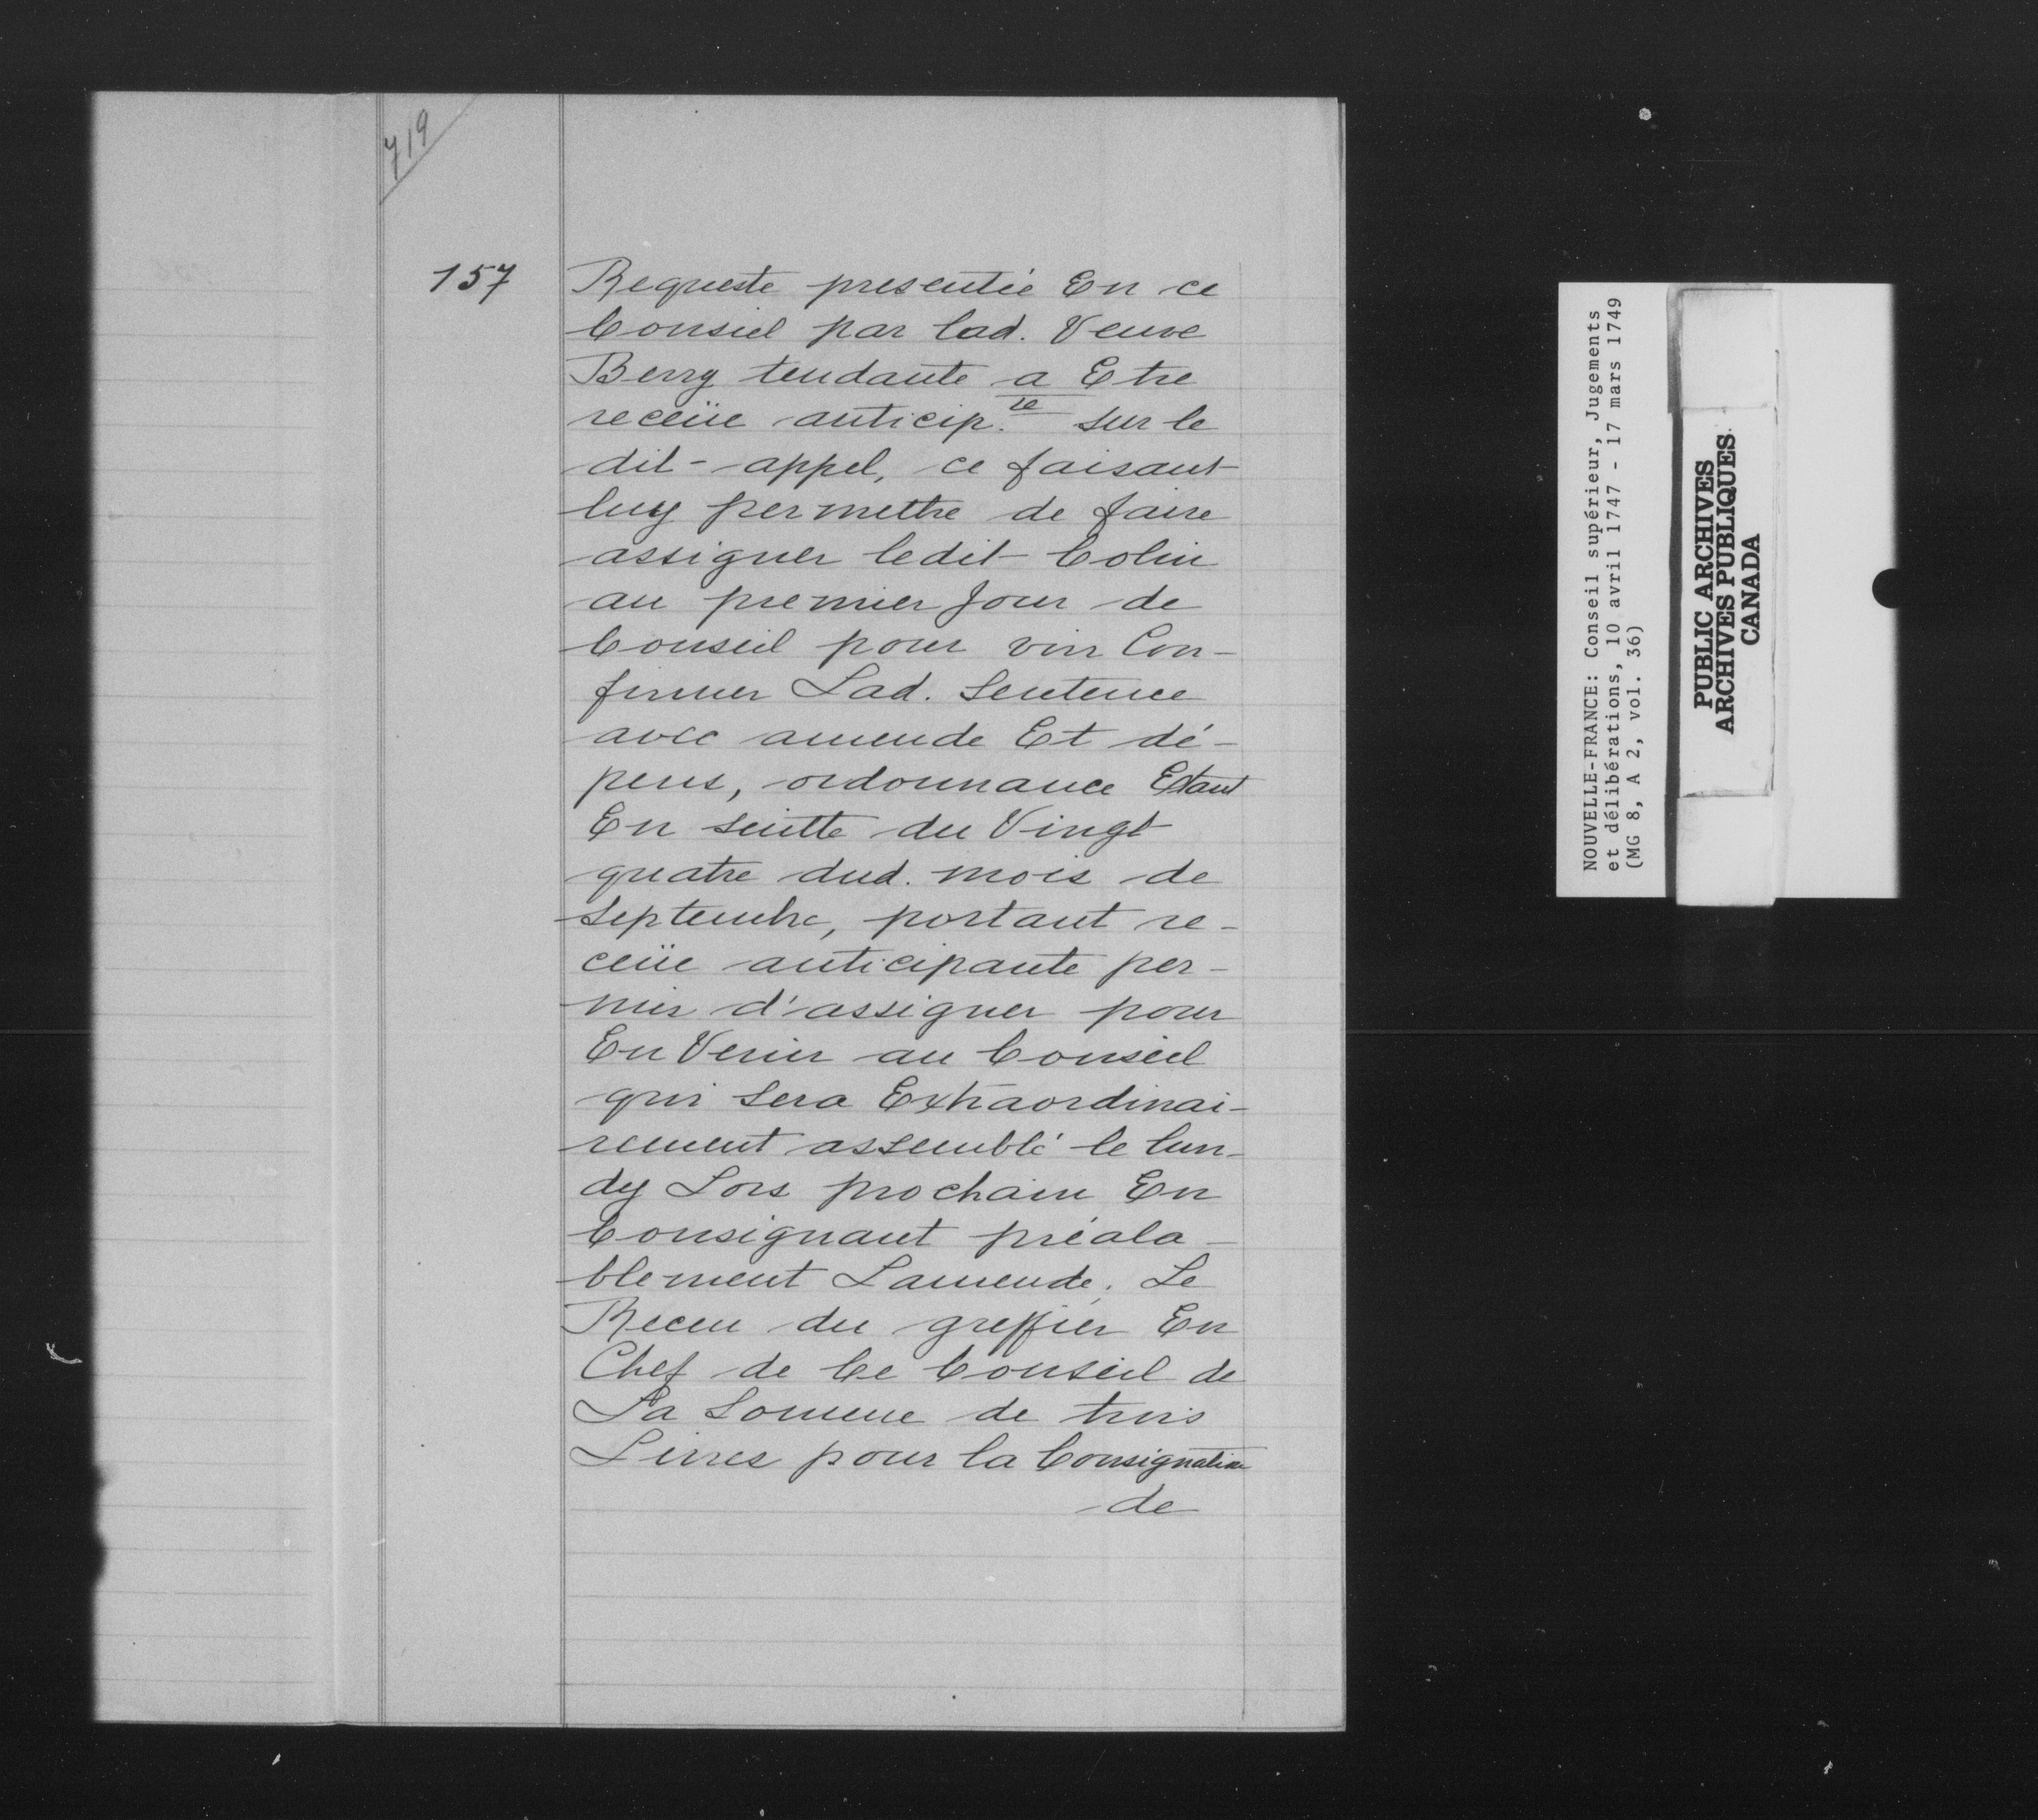 719
157
Requeste presentée En ce
Conseil par lad. Veuve
Berry tendante a Etre
receüe anticip.te sur le
dit-appel, ce faisant
luy permettre de faire
assigner ledit Colin
au premier Jour de
Conseil pour voir Con-
firmer Lad. Sentence
avec amende Et dé-
pens, ordonnance Etant
En suitte du Vingt
quatre dud. mois de
Septembre, portant re-
ceüe anticipante per-
mis d'assigner pour
En Venir au Conseil
qui sera Extraordinai-
rement assemblé le lun-
dy Lors prochain En
Consignant préala-
blement Lamende. Le
Receu du greffier En
Chef de Ce Conseil de
La Somme de trois
Livres pour la Consignation
de
NOUVELLE-FRANCE: Conseil supérieur, Jugements
et délibérations, 10 avril 1747 - 17 mars 1749
(MG 8, A 2, vol. 36)
PUBLIC ARCHIVES
ARCHIVES PUBLIQUES
CANADA